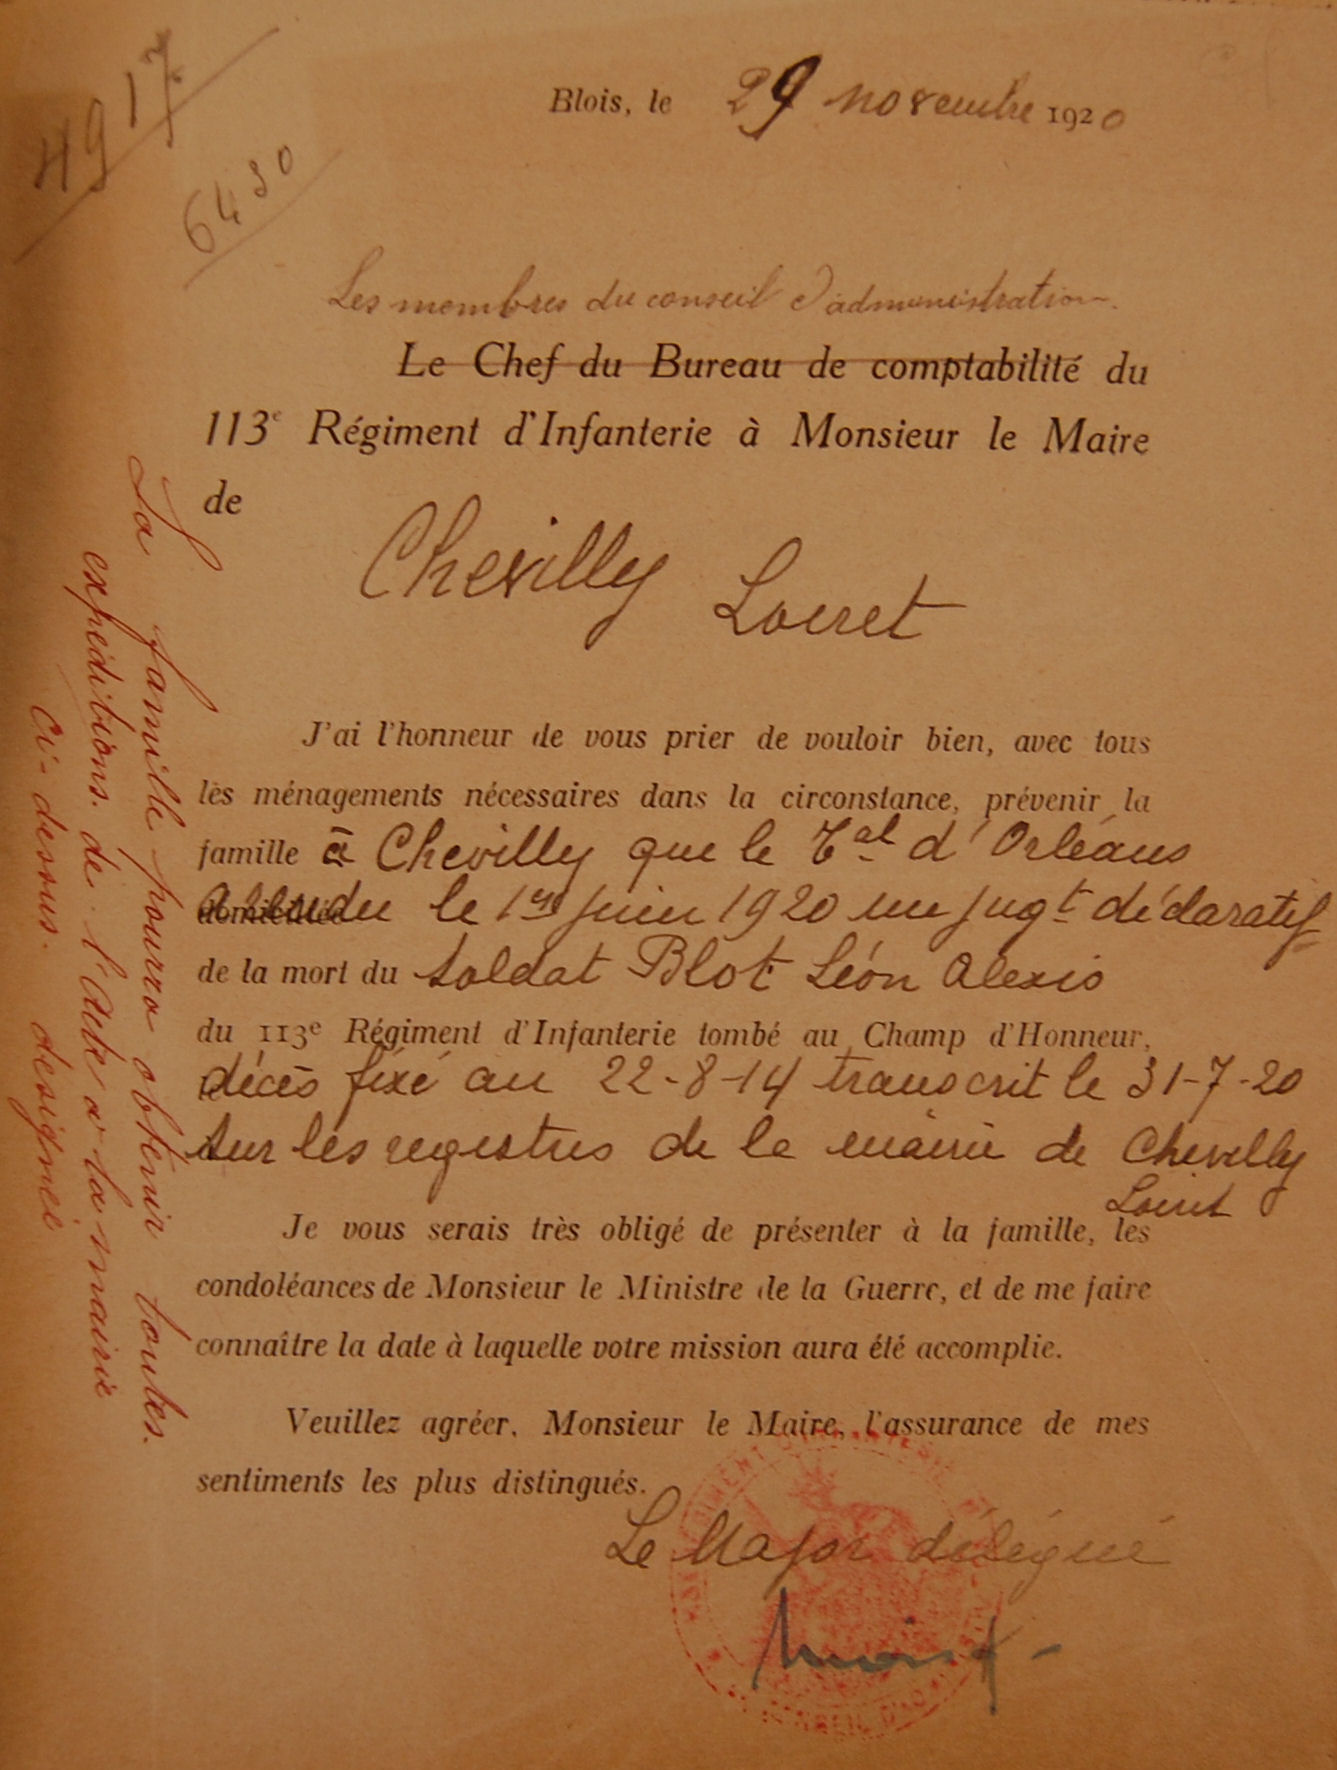 4917
6430
Blois, le 29 novembre 1920
Les membres du conseil d'administration
Le Chef du Bureau de comptabilité du
113e Régiment d'Infanterie à Monsieur le Maire
de
Chevilly
Loiret
J'ai l'honneur de vous prier de vouloir bien, avec tous
les ménagements nécessaires dans la circonstance, prévenir la
famille à Chevilly que le Tal d'Orléans
a rendu le 1er juin 1920 un jugt déclaratif
de la mort du soldat Blot Léon Alexis
du 113e Régiment d'Infanterie tombé au Champ d'Honneur,
décès fixé au 22-8-14 transcrit le 31-7-20
sur les registres de la mairie de Chevilly
Loiret
Je vous serais très obligé de présenter à la famille, les
condoléances de Monsieur le Ministre de la Guerre, et de me faire
connaître la date à laquelle votre mission aura été accomplie.
Veuillez agréer, Monsieur le Maire, l'assurance de mes
sentiments les plus distingués.
Le Major délégué
La famille pourra obtenir toutes.
expéditions. de. l'acte à la mairie
ci-dessus. désignée